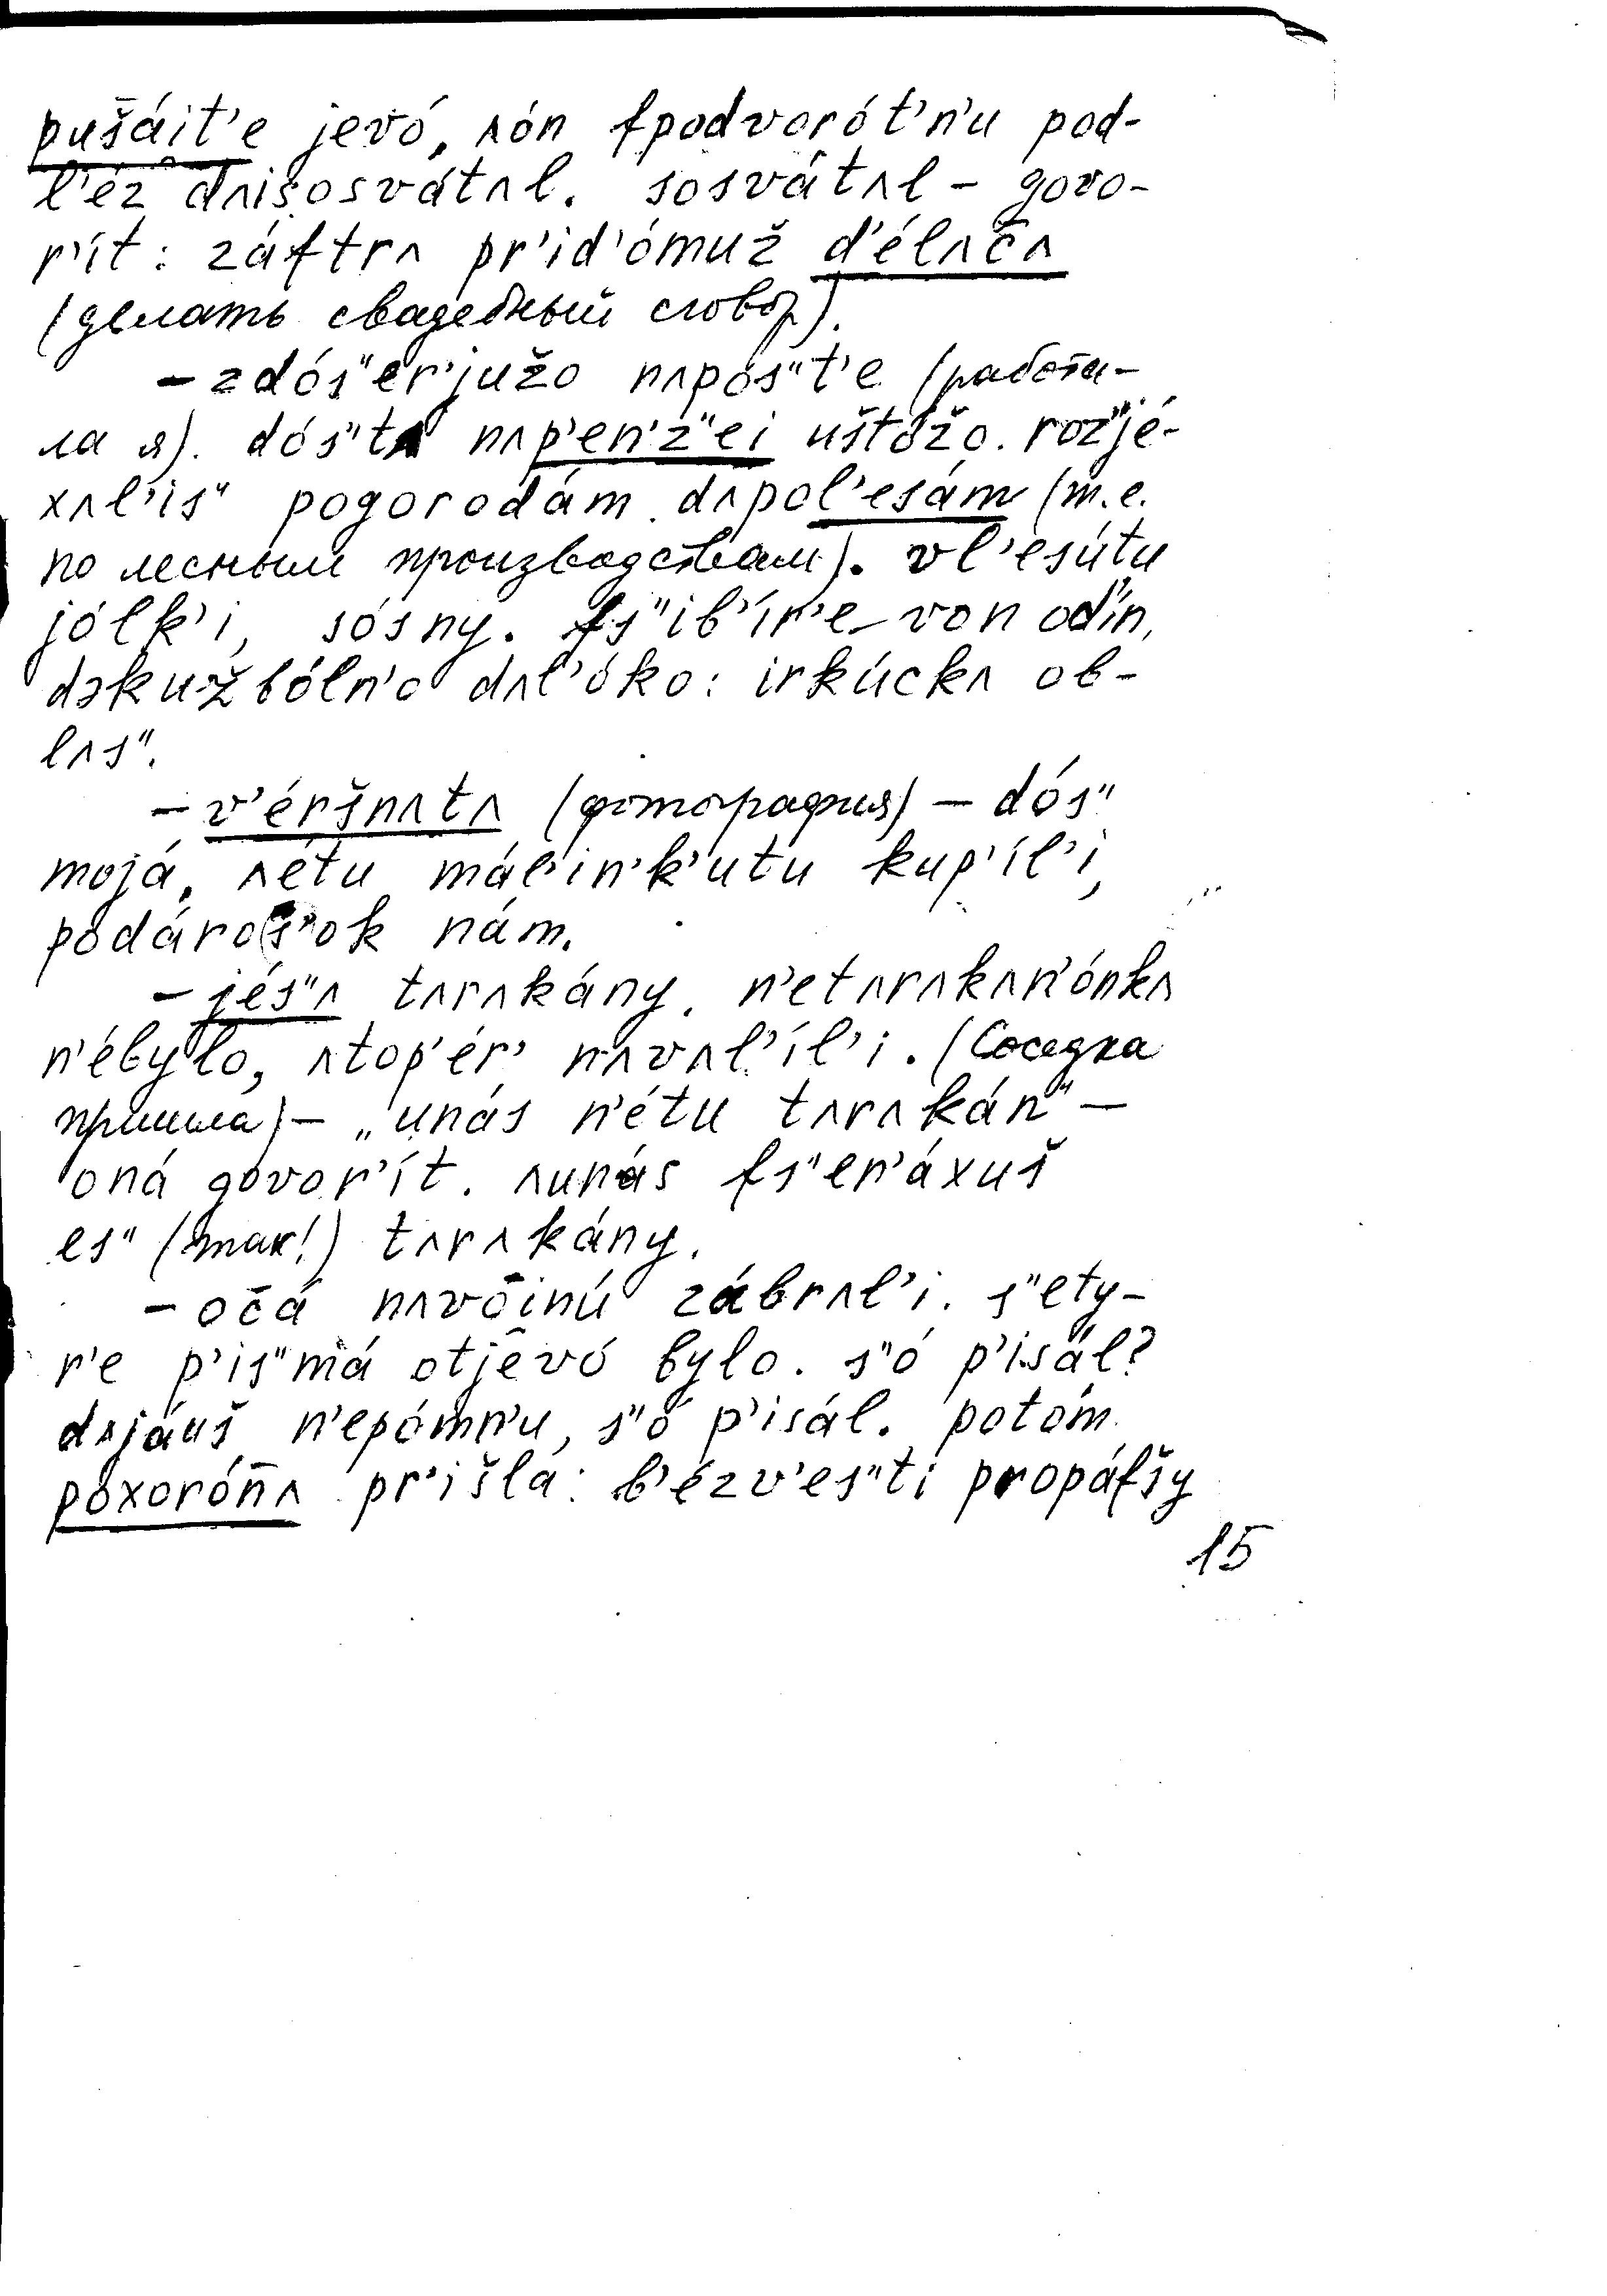 pušáit’e jevó, ʌón fpodvorót’n’u pod-
l’éz dʌišosvátʌl. sosvátʌl – govo-
r’ít: záftrʌ pr’id’ómuž d’élʌc̄ʌ
(делать свадебный сговор).
– zdós”er’južo nʌpós”t’e (работа-
ла я). dós”tʌ nʌp’en’z”ei uštóžo. roz”jé-
xʌl’is” pogorodám. dʌpol’esám (т.е.
по лесным производствам). vl’esútu
jólk’i, sósny. fs”ib’ír’e von od’ín,
dʌkužból’n’o dʌl’óko: irkúckʌ ob-
lʌs”.
– v’éršnʌtʌ (фотография) – dós”
mojá, ʌétu mál’in’k’utu kup’íl’i,
podáros”ok nám.
– jés”ʌ tʌrʌkány. n’etʌrʌkʌn’ónkʌ
n’ébylo, ʌtop’ér’ nʌvʌl’íl’i. (Соседка
пришла) – „unás n’étu tʌrʌkán” –
oná govor’ít. ʌunás fs”en’áxuš
es” (так!) tʌrʌkány.
– oc̄á nʌvoinú zábrʌl’i. s”ety-
r’e p’is”má otjevó bylo. s”ó p’isál?
dʌjáuš n’epómn’u, s”ó p’isál. potóm
poxorón̄ʌ pr’išlá: b’ézv’es”ti propáfšy
15